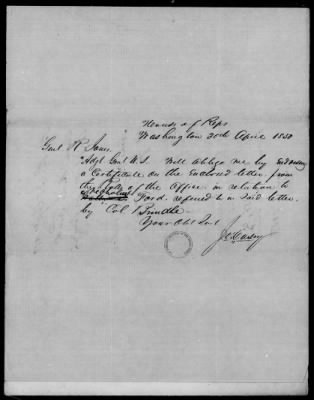 House of Reps
Washington 30th April 1850
Genl R Jones
Adgt Genl U.S. Will oblige me by Endorsing
a Certificate on the Enclosed letter, from
the Rolls of the Office in relation to
Ford. refered to in Said letter.
by Col Brindle.
Your Obt Svt
J. Casey